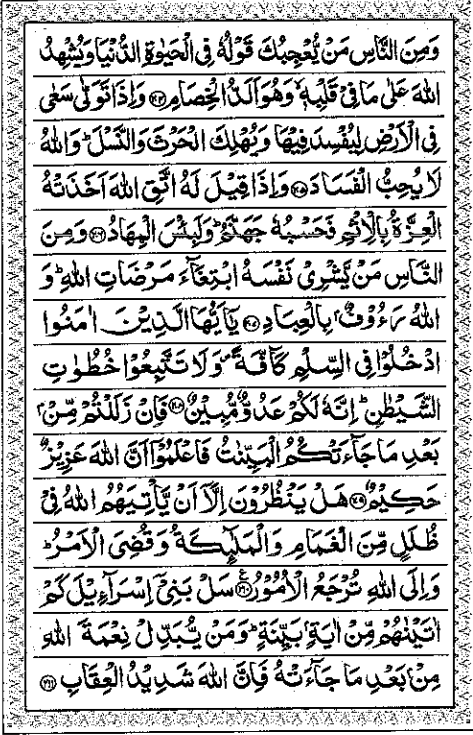 وَمِنَ النَّاسِ مَنْ يُّعْجِبُكَ قَوْلُهٗ فِي الْحَيٰوةِ الدُّنْيَا وَيُشْهِدُ
اللّٰهَ عَلٰى مَا فِيْ قَلْبِهٖ ۙ وَهُوَ اَلَدُّ الْخِصَامِ ﴿۲۰۴﴾ وَاِذَا تَوَلّٰى سَعٰى
فِي الْاَرْضِ لِيُفْسِدَ فِيْهَا وَيُهْلِكَ الْحَرْثَ وَالنَّسْلَ ؕ وَاللّٰهُ
لَا يُحِبُّ الْفَسَادَ ﴿۲۰۵﴾ وَاِذَا قِيْلَ لَهُ اتَّقِ اللّٰهَ اَخَذَتْهُ
الْعِزَّةُ بِالْاِثْمِ فَحَسْبُهٗ جَهَنَّمُ ؕ وَلَبِئْسَ الْمِهَادُ ﴿۲۰۶﴾ وَمِنَ
النَّاسِ مَنْ يَّشْرِيْ نَفْسَهُ ابْتِغَآءَ مَرْضَاتِ اللّٰهِ ؕ وَ
اللّٰهُ رَءُوْفٌۢ بِالْعِبَادِ ﴿۲۰۷﴾ يٰۤاَيُّهَا الَّذِيْنَ اٰمَنُوا
ادْخُلُوْا فِي السِّلْمِ كَآفَّةً ۪ وَلَا تَتَّبِعُوْا خُطُوٰتِ
الشَّيْطٰنِ ؕ اِنَّهٗ لَكُمْ عَدُوٌّ مُّبِيْنٌ ﴿۲۰۸﴾ فَاِنْ زَلَلْتُمْ مِّنْۢ
بَعْدِ مَا جَآءَتْكُمُ الْبَيِّنٰتُ فَاعْلَمُوْۤا اَنَّ اللّٰهَ عَزِيْزٌ
حَكِيْمٌ ﴿۲۰۹﴾ هَلْ يَنْظُرُوْنَ اِلَّاۤ اَنْ يَّاْتِيَهُمُ اللّٰهُ فِيْ
ظُلَلٍ مِّنَ الْغَمَامِ وَالْمَلٰٓئِكَةُ وَقُضِيَ الْاَمْرُ ؕ
وَاِلَى اللّٰهِ تُرْجَعُ الْاُمُوْرُ ﴿۲۱۰﴾ ع سَلْ بَنِيْۤ اِسْرَآءِيْلَ كَمْ
اٰتَيْنٰهُمْ مِّنْ اٰيَةٍۭ بَيِّنَةٍ ؕ وَمَنْ يُّبَدِّلْ نِعْمَةَ اللّٰهِ
مِنْۢ بَعْدِ مَا جَآءَتْهُ فَاِنَّ اللّٰهَ شَدِيْدُ الْعِقَابِ ﴿۲۱۱﴾